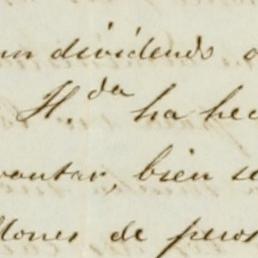 un dividendo
H.da ha hec
vantar, bien se
llones de pesos